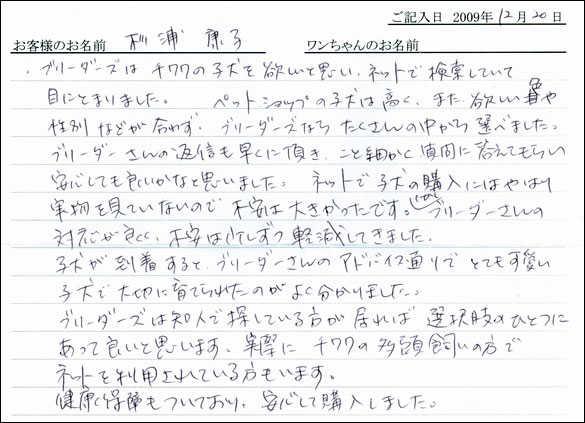 ご記入日 2009年 12月 20日
お客様のお名前 松浦 康子 ワンちゃんのお名前
・ブリーダーズは チワワの子犬を欲しいと思い、ネットで検索していて
目にとまりました。 ペットショップの子犬は高く、また、欲しい色や
性別などが合わず、ブリーダーズなら たくさんの中から選べました。
ブリーダーさんの返信も早くに頂き、こと細かく質問に答えてもらい
安心しても良いかなと思いました。 ネットで子犬の購入にはやはり
実物を見ていないので 不安は大きかったです。しかしブリーダーさんの
対応が良く、不安は少しずつ軽減してきました。
子犬が到着すると、ブリーダーさんのアドバイス通りで とても可愛い
子犬で大切に育てられたのがよく分かりました。
ブリーダーズは知人で探している方が居れば 選択肢のひとつに
あって良いと思います、実際に チワワの多頭飼いの方で
ネットを利用されている方もいます。
健康保障もついており、安心して購入しました。